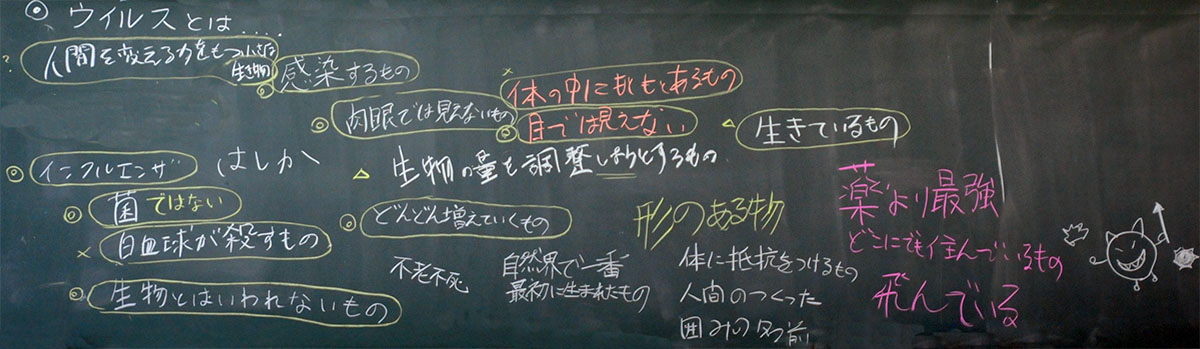 ◎ ウイルスとは....
? 人間を変える力をもつ小さな
生き物
◎ 感染するもの
× 体の中にもともとあるもの
◎ 肉眼では見えないもの
◎ 目では見えない
△ 生きているもの
◎ インフルエンザ はしか
△ 生物の量を調整しようとするもの
◎ 菌ではない
◎ どんどん増えていくもの
形のある物
薬より最強
× 白血球が殺すもの
どこにでも住んでいるもの
不老不死
自然界で一番
最初に生まれたもの
体に抵抗をつけるもの
人間のつくった
囲みの名前
飛んでいる
◎ 生物とはいわれないもの